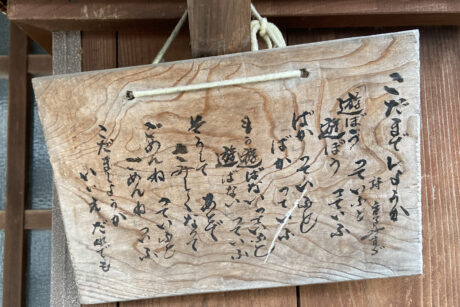 こだまでしょうか
遊ぼうっていうと
遊ぼうっていう
ばかっていうと
ばかっていう
もう遊ばないっていうと
遊ばないっていう
そうしてあとで
さみしくなって
ごめんねっていうと
ごめんねっていう
こだまでしょうか
いいえだれでも